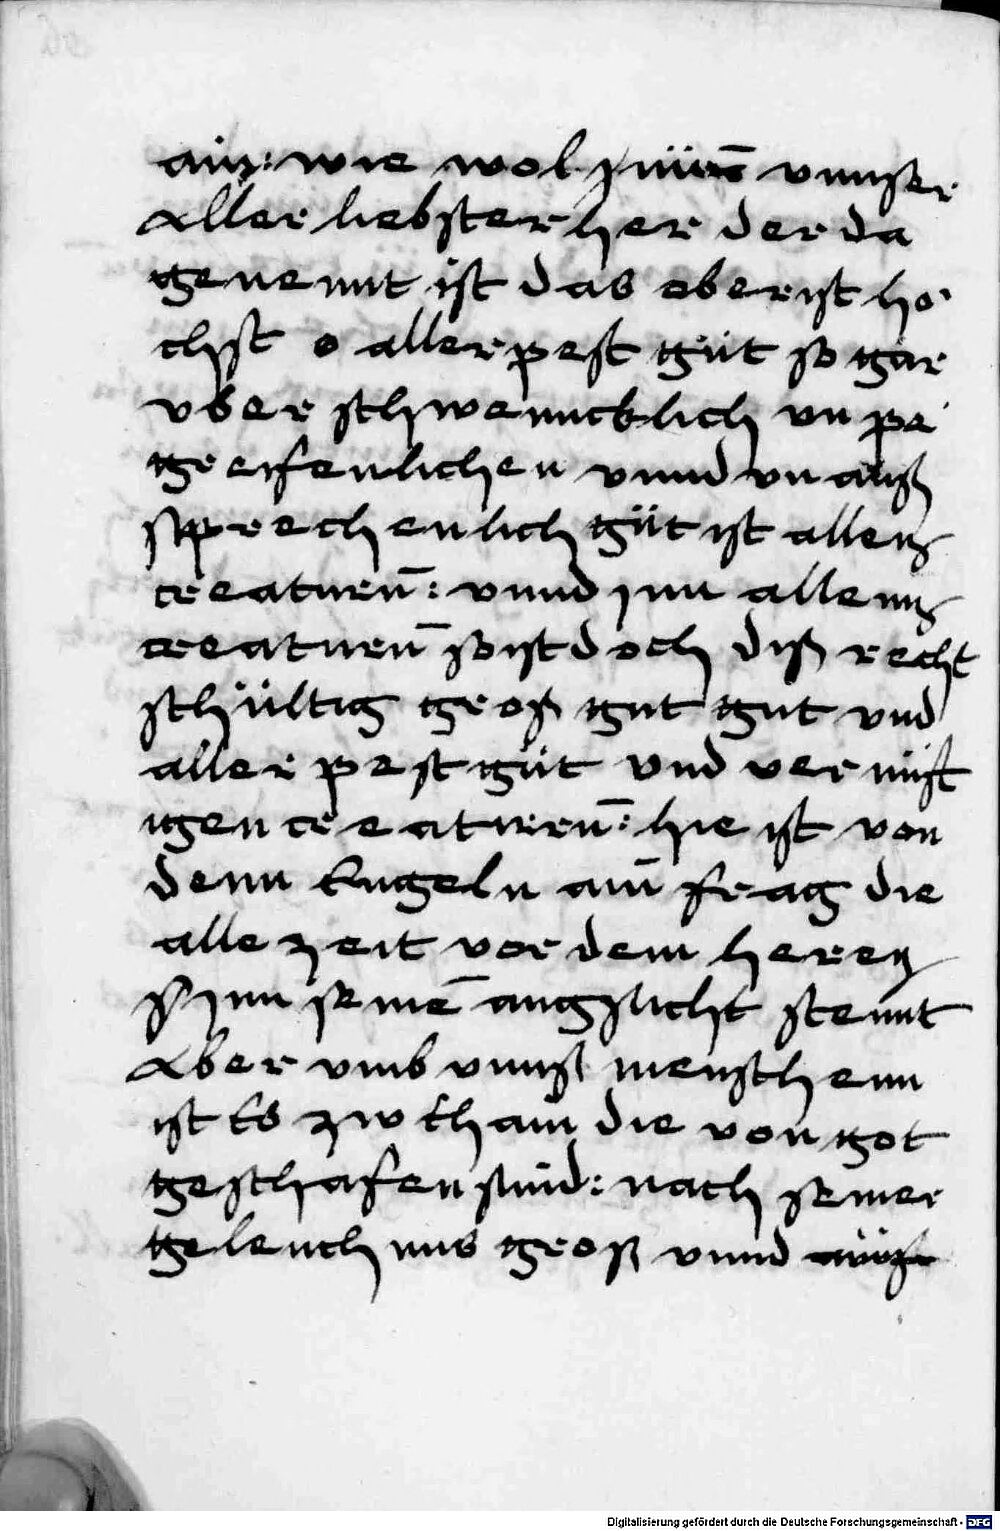 ain: wie wol vnnser
Aller liebster her der da
genennt ist das oberist hö
chst o aller pest güt so gar
vber schwencklich vn pe
greifenlichen vnnd vn auß
sprechenlich güt ist allen
creaturn̄: vnnd jnn allenn
creaturn̄ so ist doch diß recht
schültig groß gut gut vnd
aller pest güt vnd ver nüft
igen creaturen̄: hie ist von
denn Engeln ain̄ frag die
alle zeit vor dem heren
jnn seinē angsicht stennt
Aber vmb vnnß menschenn
ist Es zw thain die von got
geschafen sind: nach seiner
geleuchnus groß vnnd
Digitalisierung gefördert durch die Deutsche Forschungsgemeinschaft - DFG